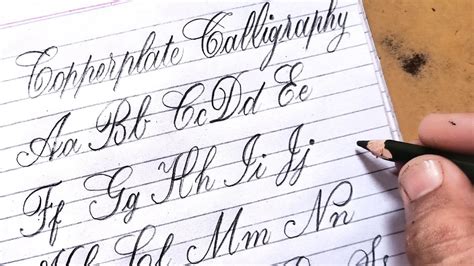 Copperplate Calligraphy
Aa Bb Cc Dd Ee
Ff Gg Hh Ii Jj
Kk Ll Mm Nn